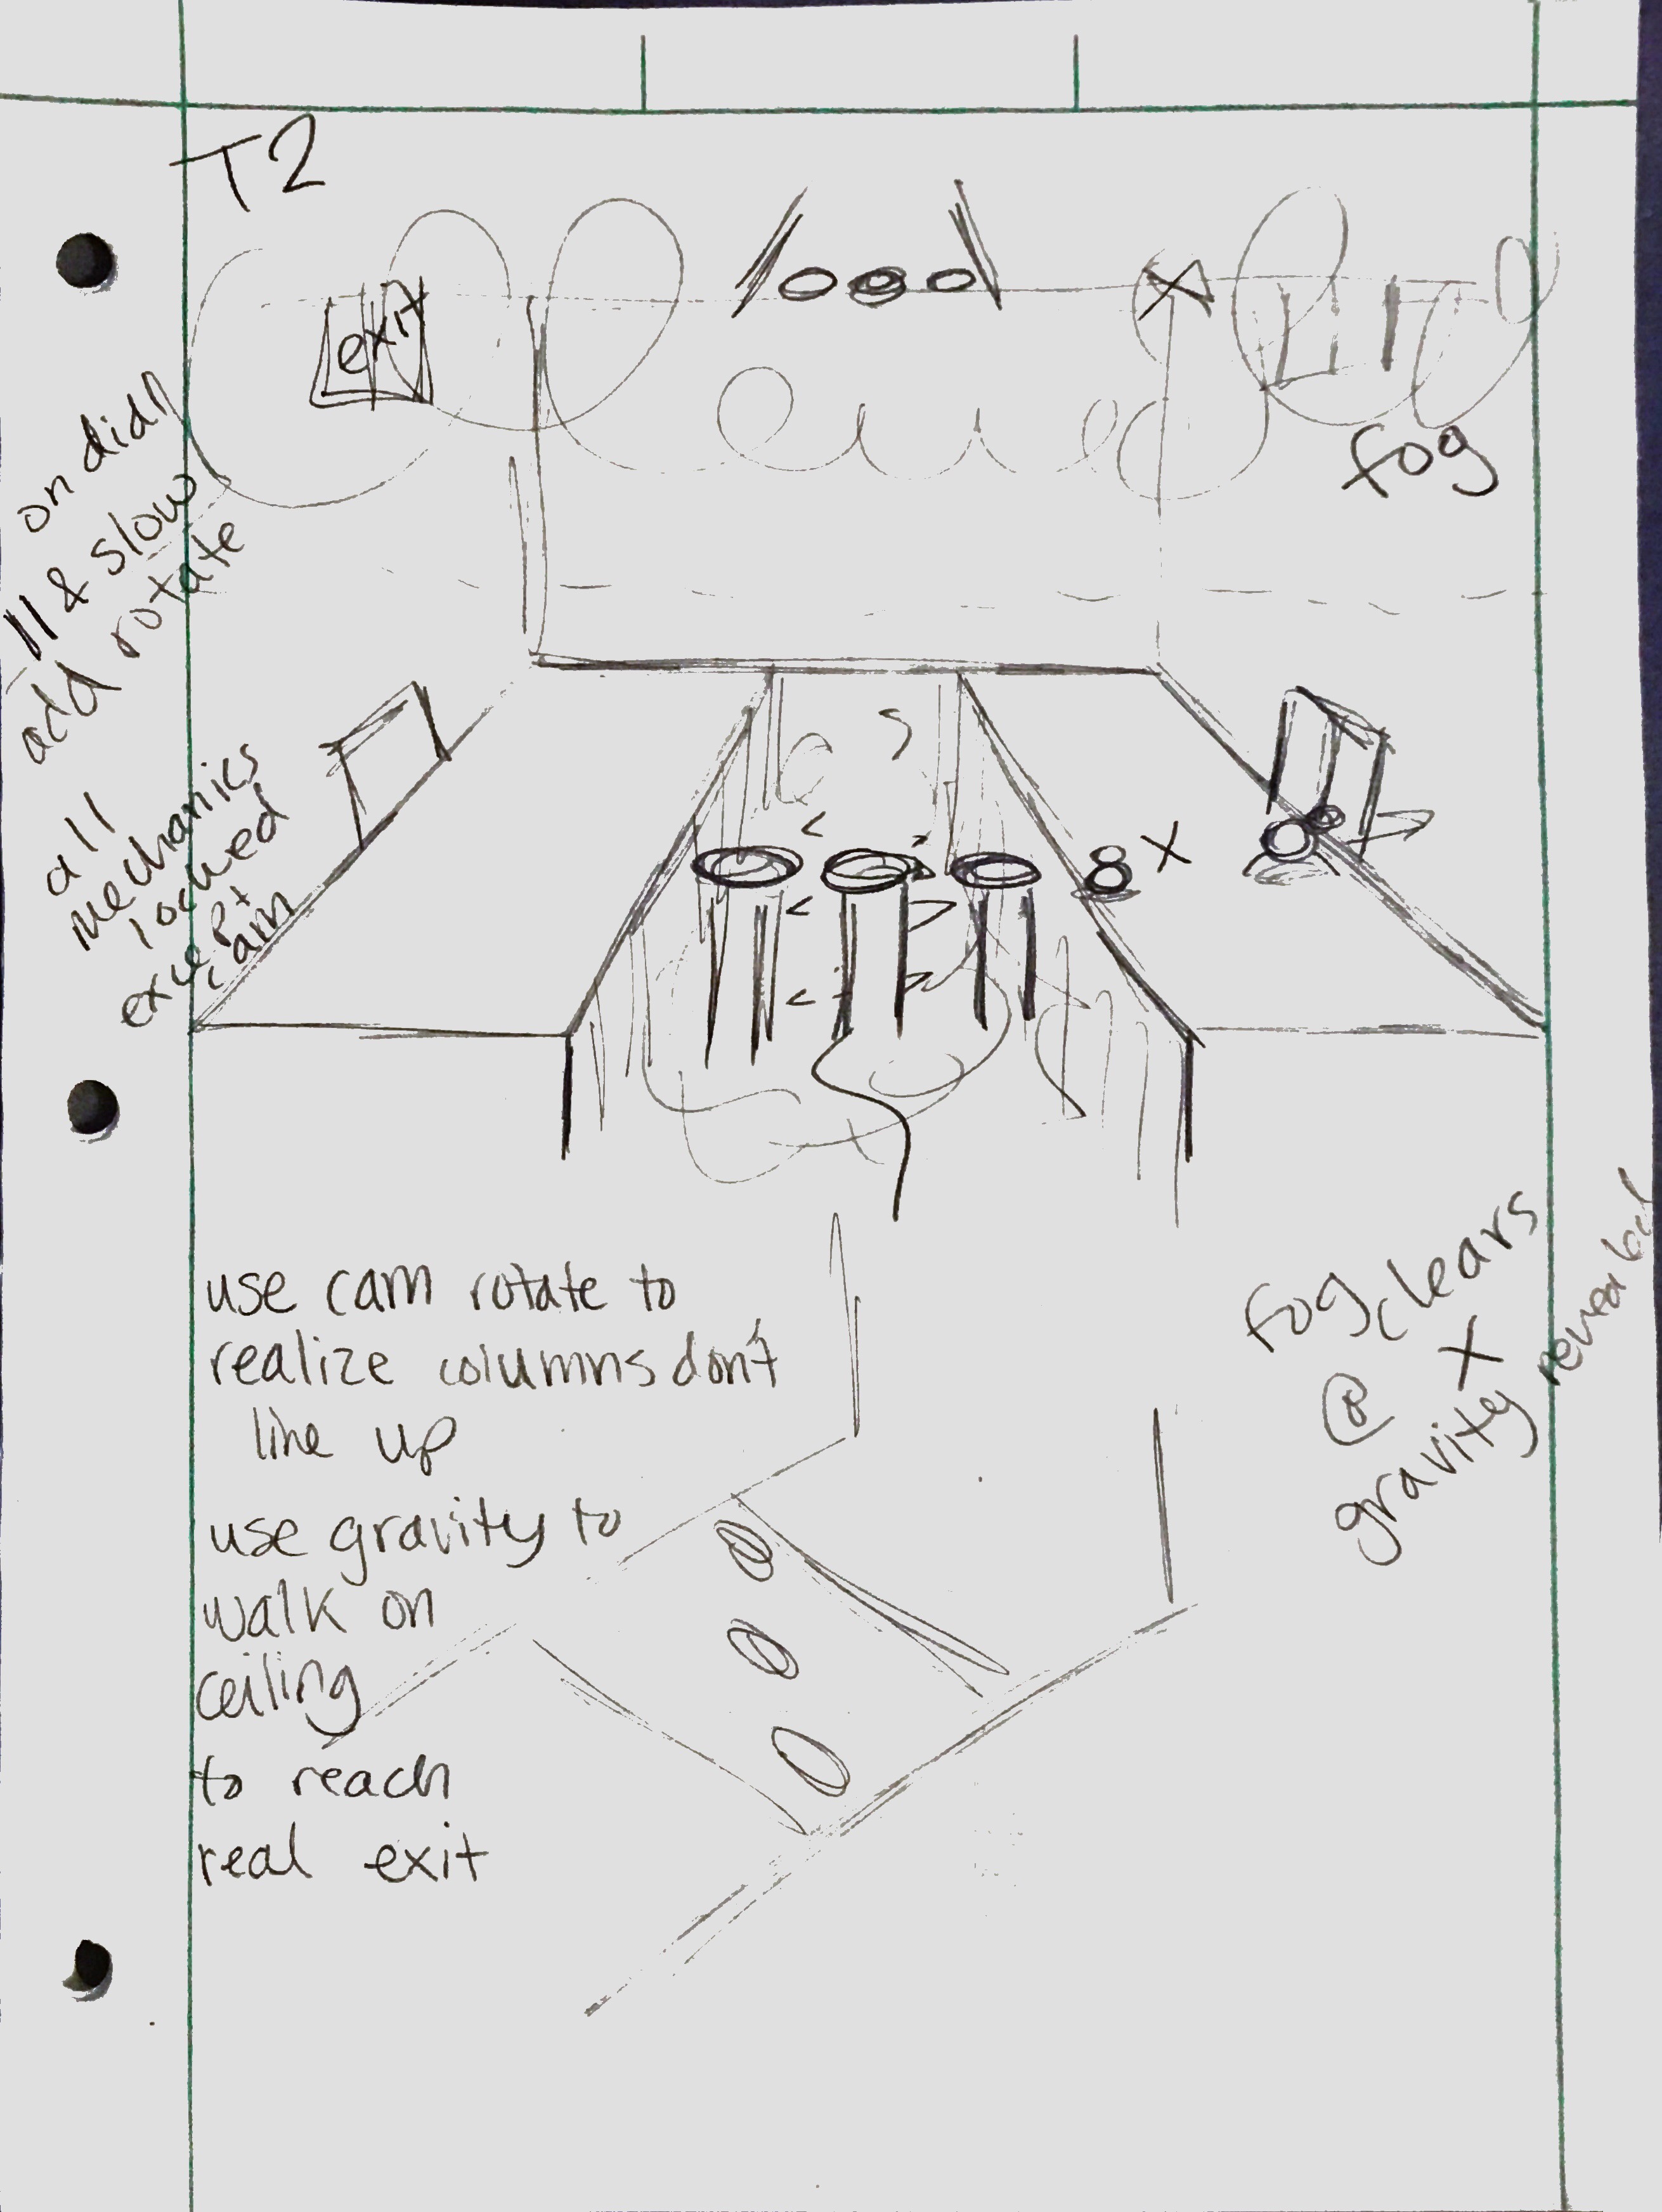 T2
exit
fog
on dial
ll & slow
add rotate
all
mechanics
locked
except
cam
X
use cam rotate to
realize columns don't
line up
use gravity to
walk on
ceiling
to reach
real exit
fog clears
@
gravity X